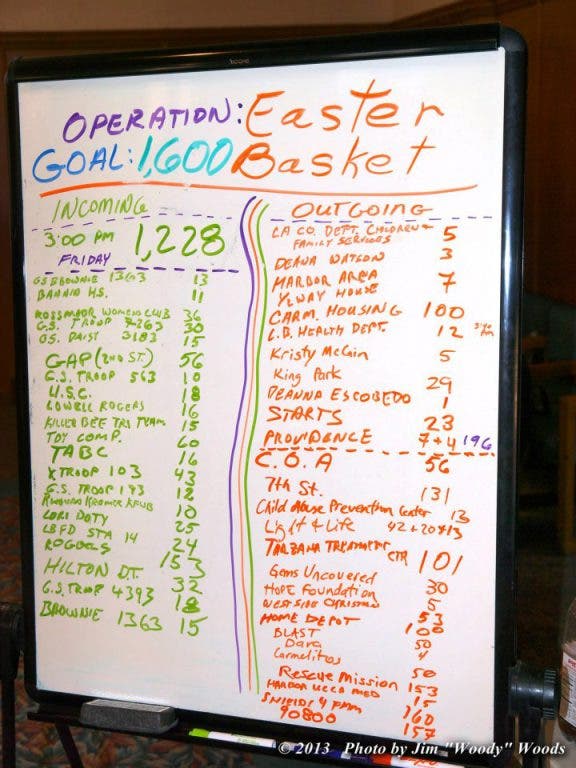 OPERATION: Easter
GOAL: 1,600 Basket
INCOMING
3:00 PM 1,228
FRIDAY
GS BROWNIE 1363 13
BANAID HS. 11
ROSSMOOR WOMENS CLUB 36
G.S. TROOP 7263 30
GS. DAISY 3183 15
GAP (2ND ST.) 56
G.S. TROOP 563 10
U.S.C. 18
LOWELL ROGERS 16
KILLER BEE TRI TEAM 15
TOY COMP. 60
TABC 16
X TROOP 103 43
G.S. TROOP 193 12
KIWANIS 10
LORI DOTY 25
LBFD STA 14
ROGERS 24
HILTON D.T. 153
G.S. TROOP 4393 32
18
BROWNIE 1363 15
OUTGOING
LA CO. DEPT. CHILDREN &
FAMILY SERVICES 5
DEANA WATSON 3
HARBOR AREA
HOUSE 7
CARM. HOUSING 100
L.B. HEALTH DEPT. 12
Kristy McCain 5
King Park 29
DEANNA ESCOBEDO 1
STARTS 23
PROVIDENCE 7+4 196
C.O.A 56
7th St. 131
Child Abuse Prevention Center 13
Light & Life 42+20+13
TARZANA TREATMENT CTR 101
Gems Uncovered
HOPE Foundation 30
WEST SIDE CHRISTIAN 5
HOME DEPOT 53
BLAST 100
Dara 50
Carmelitos 4
Rescue Mission 50
HARBOR UCLA MED 153
15
160
90800 157
© 2013 Photo by Jim "Woody" Woods